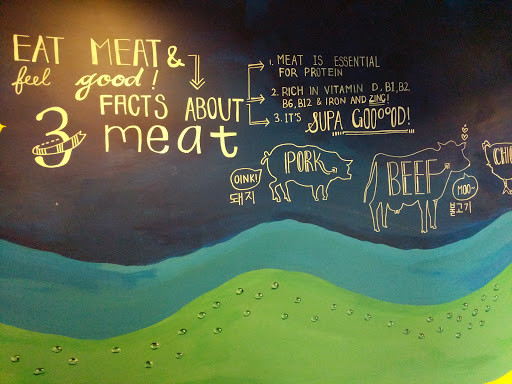 EAT MEAT &
feel good!
3 FACTS ABOUT
meat
1. MEAT IS ESSENTIAL
FOR PROTEIN
2. RICH IN VITAMIN D, B1, B2
B6, B12 & IRON AND ZING!
3. IT'S SUPA GOOOOOD!
PORK
OINK!
돼지
BEEF
MOO~
고기